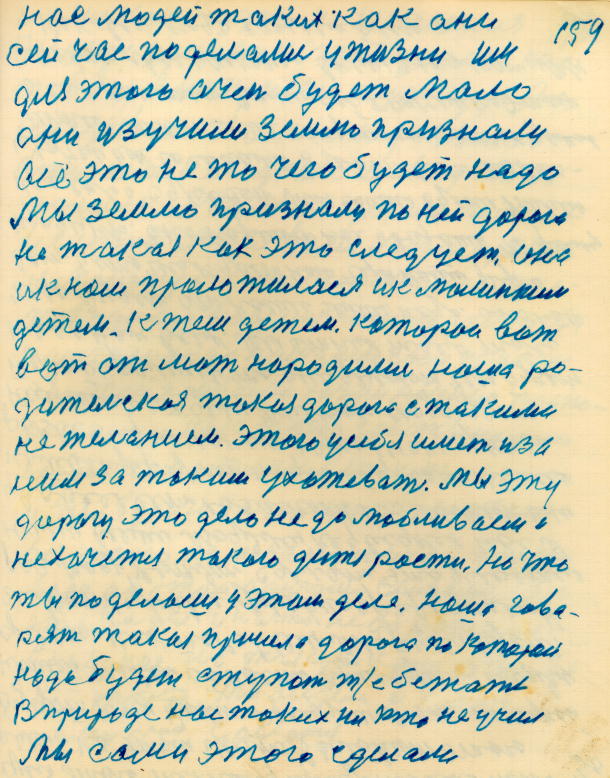 159
нас людей таких как они
сей час поделами у жизни им
для этого очен будет мало
они изучили землю признали
всё это не то чего будет надо
Мы землю признали по ней дорога
не такая как это следует, она
и к нам проложилася и к малинким
детем. К тем детем. которои вот
вот от мат народили наша ро-
дителская такая дорога с такими
не желанием. Этого у себя имет и за
ним за таким ухаживат. Мы эту
дорогу это дело не до любливаем и
нехочется такого дитя рости. Но что
ты поделаеш у этом деле. Наша гова-
рят такая пришла дорога по которой
надо будет ступат т/е бежать
В природе нас таких ни кто не учил
Мы сами этого сделали